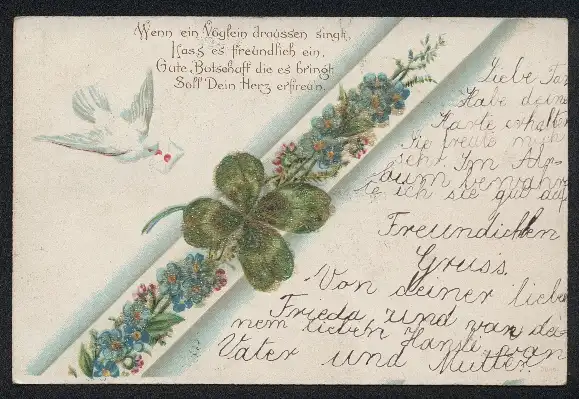 Wenn ein Vöglein draussen singt,
Lass es freundlich ein,
Gute Botschaft die es bringt
Soll Dein Herz erfreun.
Liebe Tan
Habe deine
Karte erhalten
Sie freute mich
sehr. Im Al-
baum verwahr
te ich sie gut auf
Freundichen
Gruss.
Von deiner liebe
Frieda und van dei
nem lieben Hansli van
Vater und Mutter.